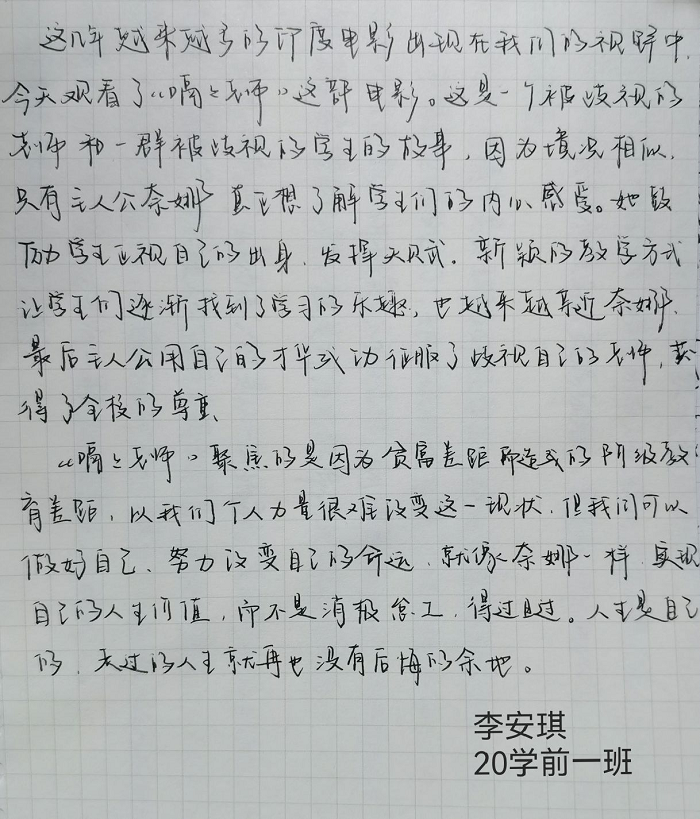 这几年越来越多的印度电影出现在我们的视野中,
今天观看了《嗝嗝老师》这部电影。这是一个被歧视的
老师和一群被歧视的学生的故事，因为境况相似，
只有主人公奈娜真正想了解学生们的内心感受。她鼓
励学生正视自己的出身、发挥天赋。新颖的教学方式
让学生们逐渐找到了学习的乐趣，也越来越亲近奈娜、
最后主人公用自己的才华成功征服了歧视自己的老师，获
得了全校的尊重、
《嗝嗝老师》聚焦的是因为贫富差距所造成的阶级教
育差距，以我们个人力量很难改变这一现状、但我们可以
做好自己、努力改变自己的命运、就像奈娜一样、实现
自己的人生价值，而不是消极怠工，得过且过。人生是自己
的，走过的人生就再也没有后悔的余地。
李安琪
20学前一班